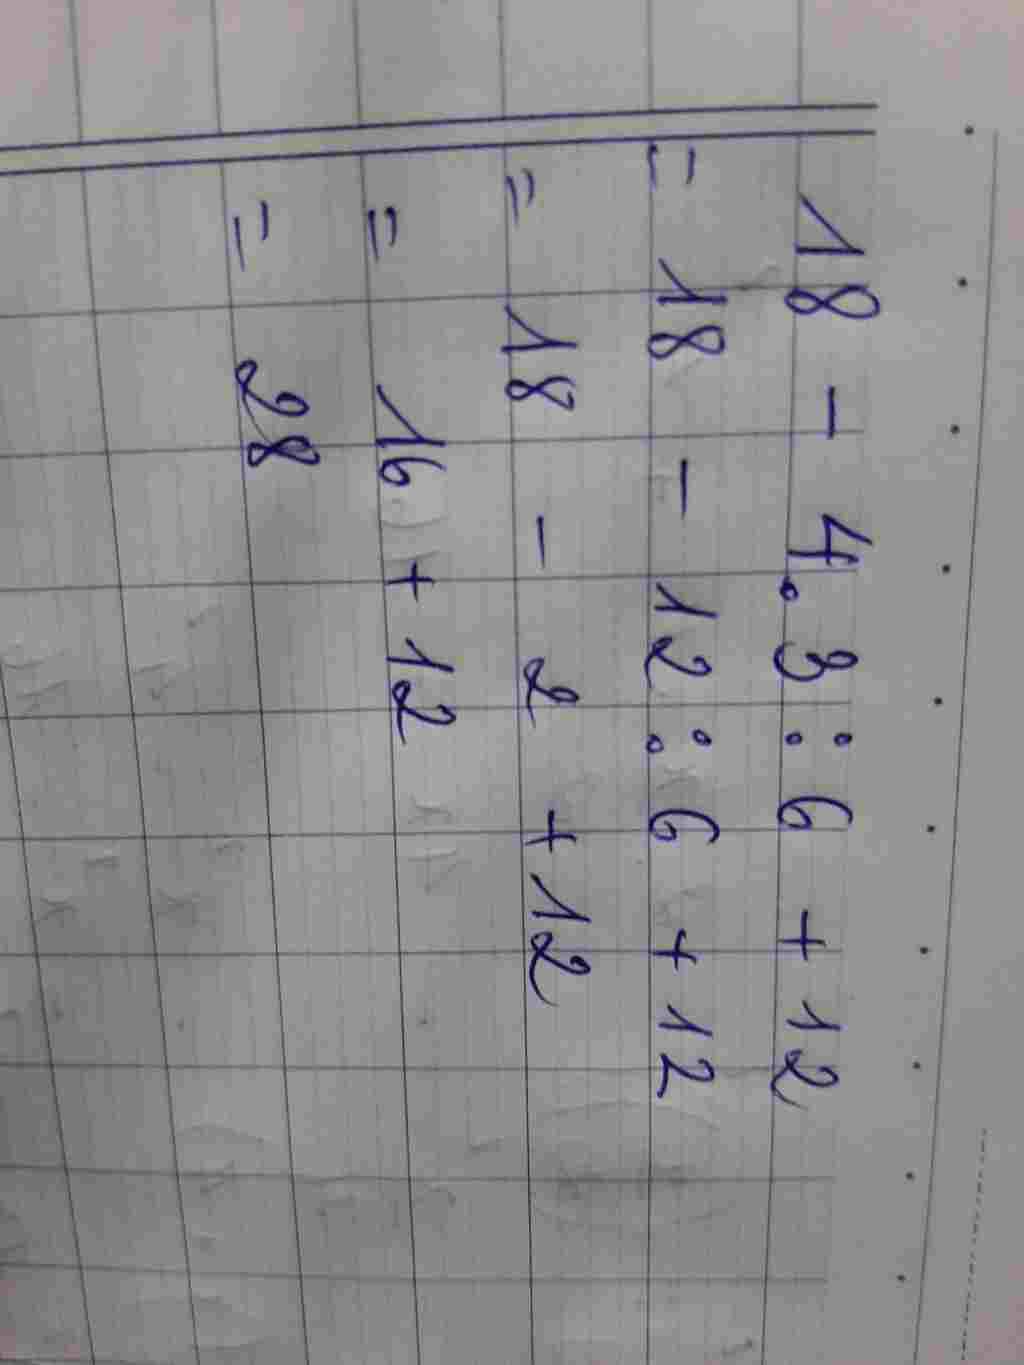 18 - 4.3:6 + 12
= 18 - 12:6 + 12
= 18 - 2 + 12
= 16 + 12
= 28